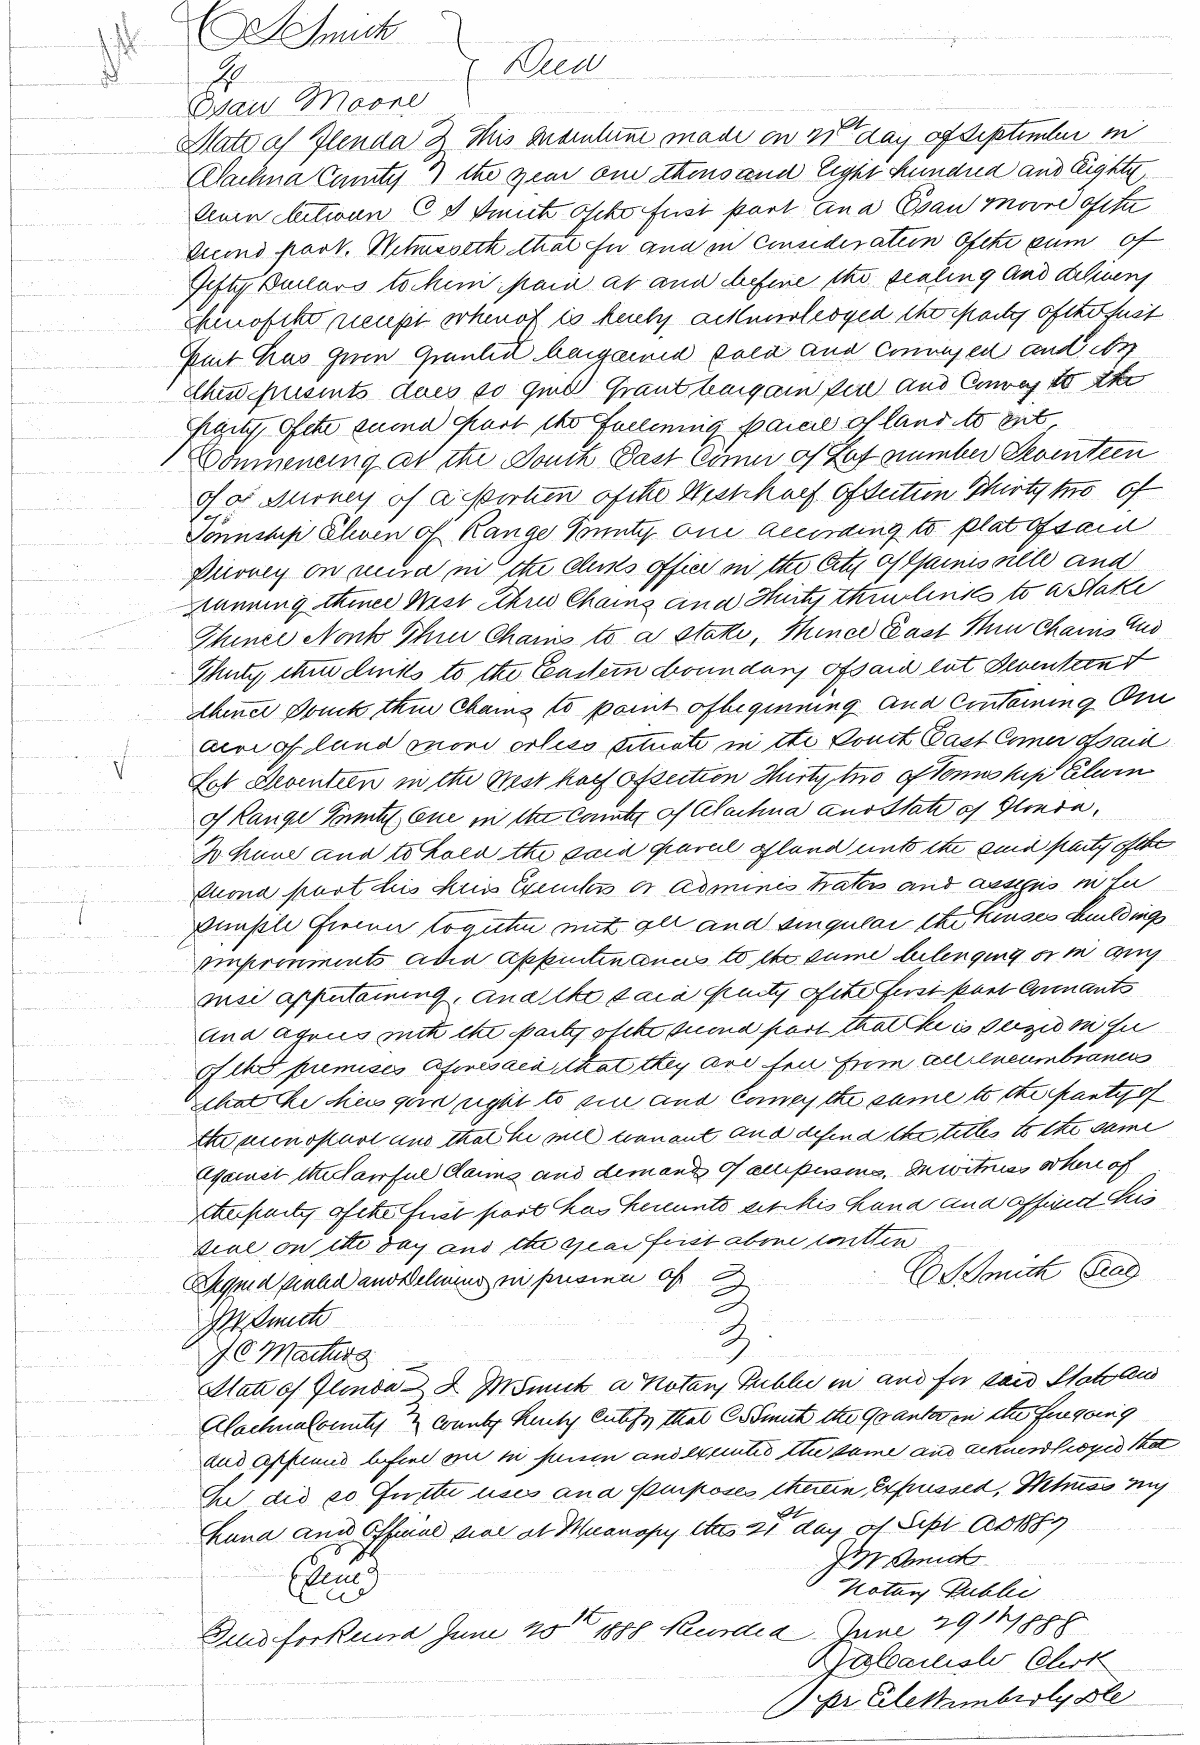 C S Smith
To
Deed
Esau Moore
State of Florida } This Indenture made on 21st day of September in
Alachua County } the year one thousand Eight hundred and Eighty
seven between C S Smith of the first part and Esau Moore of the
second part. Witnesseth that for and in consideration of the sum of
Fifty Dollars to him paid at and before the sealing and delivery
hereof the receipt whereof is hereby acknowledged the party of the first
part has given granted bargained sold and conveyed and by
these presents does so give Grant bargain sell and Convey to the
party of the second part the following parcel of land to wit,
Commencing at the South East Corner of Lot number Seventeen
of a survey of a portion of the West half of Section Thirty two of
Township Eleven of Range Twenty one according to plat of said
Survey on record in the Clerks office in the City of Gainesville and
running thence West three Chains and Thirty three links to a Stake
Thence North Three Chains to a stake, Thence East Three Chains and
Thirty three links to the Eastern boundary of said lot Seventeen &
thence South three Chains to point of beginning and containing One
acre of land more or less situate in the South East Corner of said
Lot Seventeen in the West half of section Thirty two of Township Eleven
of Range Twenty One in the County of Alachua and State of Florida.
To have and to hold the said parcel of land unto the said party of the
second part his heirs Executors or administrators and assigns in fee
simple forever together with all and singular the houses buildings
improvements and appurtenances to the same belonging or in any
wise appertaining. and the said party of the first part covenants
and agrees with the party of the second part that he is seized in fee
of the premises aforesaid that they are free from all encumbrances
that he has good right to sell and Convey the same to the party of
the second part and that he will warrant and defend the titles to the same
against the lawful Claims and demands of all persons. In witness whereof
the party of the first part has hereunto set his hand and affixed his
seal on the day and the year first above written
Signed sealed and Delivered in presence of } C S Smith (Seal)
J W Smith }
J C Mathers }
State of Florida } I J W Smith a Notary Public in and for said State and
Alachua County } County hereby Certify that C S Smith the Grantor in the foregoing
deed appeared before me in person and executed the same and acknowledged that
he did so for the uses and purposes therein Expressed. Witness my
hand and Official seal at Micanopy this 21st day of Sept AD 1887
J W Smith
(Seal)
Notary Public
Filed for Record June 20th 1888 Recorded June 29th 1888
Clerk
pr